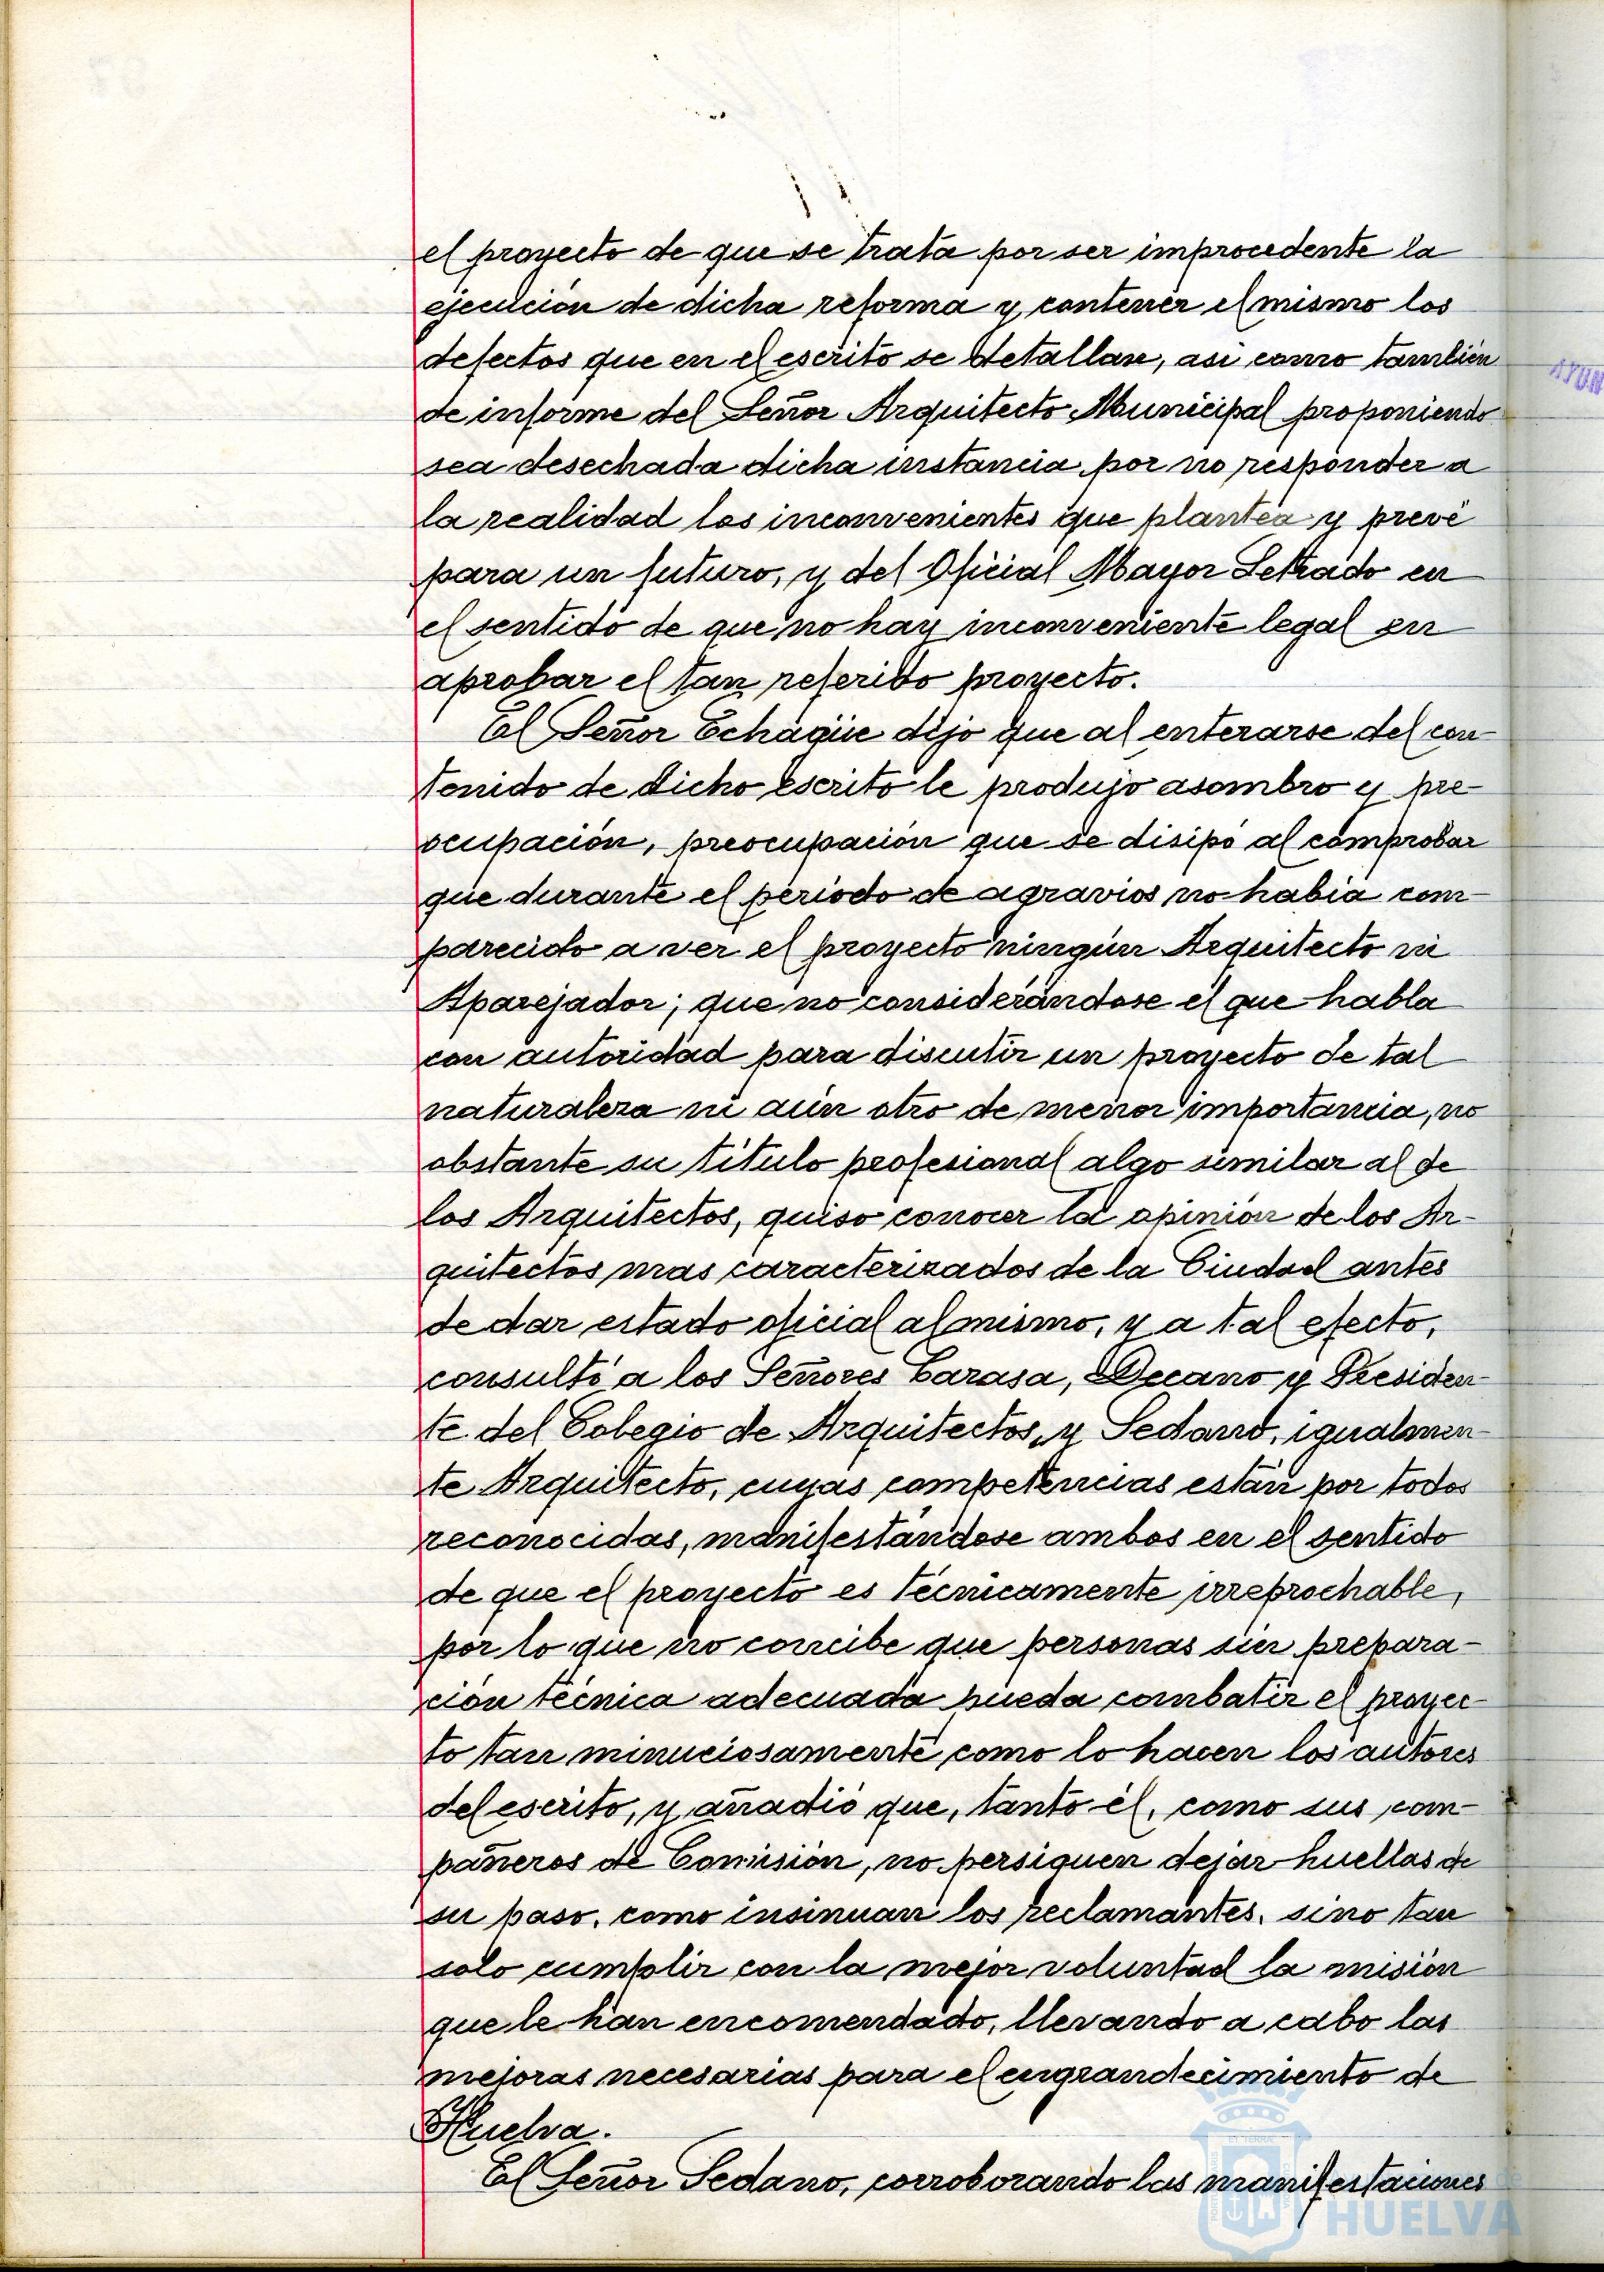 el proyecto de que se trata por ser improcedente la
ejecución de dicha reforma y contener el mismo los
defectos que en el escrito se detallan, asi como también
de informe del Señor Arquitecto Municipal proponiendo
sea desechada dicha instancia por no responder a
la realidad los inconvenientes que plantea y prevé
para un futuro, y del Oficial Mayor Letrado en
el sentido de que no hay inconveniente legal en
aprobar el tan referido proyecto.
El Señor Echagüe dijo que al enterarse del con-
tenido de dicho escrito le produjo asombro y pre-
ocupación, preocupación que se disipó al comprobar
que durante el período de agravios no había com-
parecido a ver el proyecto ningún Arquitecto ni
Aparejador; que no considerándose el que habla
con autoridad para discutir un proyecto de tal
naturaleza ni aún otro de menor importancia, no
obstante su título profesional algo similar al de
los Arquitectos, quiso conocer la opinión de los Ar-
quitectos mas caracterizados de la Ciudad antes
de dar estado oficial al mismo, y a tal efecto,
consultó a los Señores Carasa, Decano y Presiden-
te del Colegio de Arquitectos, y Sedano, igualmen-
te Arquitecto, cuyas competencias están por todos
reconocidas, manifestándose ambos en el sentido
de que el proyecto es técnicamente irreprochable,
por lo que no concibe que personas sin prepara-
ción técnica adecuada pueda combatir el proyec-
to tan minuciosamente como lo hacen los autores
del escrito, y añadió que, tanto él, como sus com-
pañeros de Comisión, no persiguen dejar huellas de
su paso, como insinuan los reclamantes, sino tan
solo cumplir con la mejor voluntad la misión
que le han encomendado, llevando a cabo las
mejoras necesarias para el engrandecimiento de
Huelva.
El Señor Sedano, corroborando las manifestaciones
AYUN
de
HUELVA